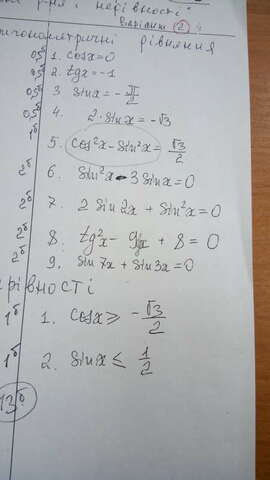 і нерівності
Варіант 2
рівняння
0,5б 1. cosx=0
0,5б 2. tgx=-1
0,5б 3. sinx=-π/2
0,5б 4. 2·sinx=-√3
1б 5. cos²x-sin²x=√3/2
2б 6. sin²x-3sinx=0
2б 7. 2sin2x+sin²x=0
2б 8. tg²x-9tgx+8=0
2б 9. sin7x+sin3x=0
1б 1. cosx≥-√3/2
1б 2. sinx≤1/2
13б